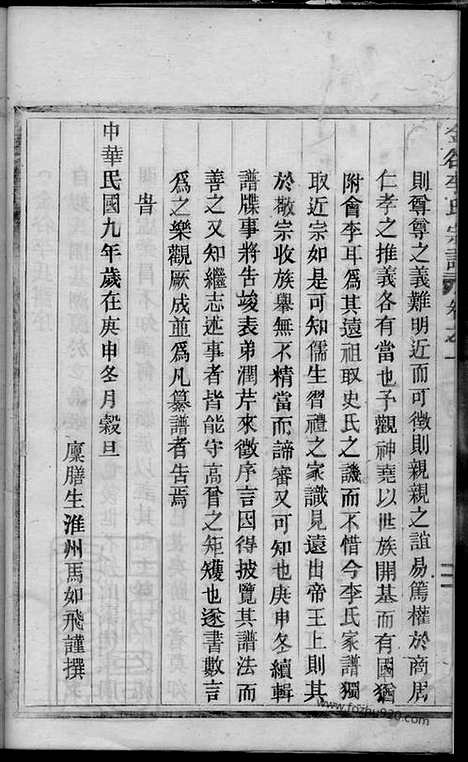 則尊尊之義難明近而可徵則親親之誼易篤權於商居
仁孝之推義各有當也予觀神堯以世族開基而有國猶
附會李耳爲其遠祖取史氏之譏而不惜今李氏家譜獨
取近宗如是可知儒生習禮之家識見遠出帝王上則其
於敬宗收族舉無不精當而諦審又可知也庚申冬續輯
譜牒事將告竣表弟潤芹來徵序言因得披覽其譜法而
善之又知繼志述事者皆能守高曾之矩矱也遂書數言
爲之樂觀厥成並爲凡纂譜者告焉
旹
中華民國九年歲在庚申冬月穀旦
廩膳生淮州馬如飛謹撰
李氏宗譜
卷之一
www.fozhu920.com